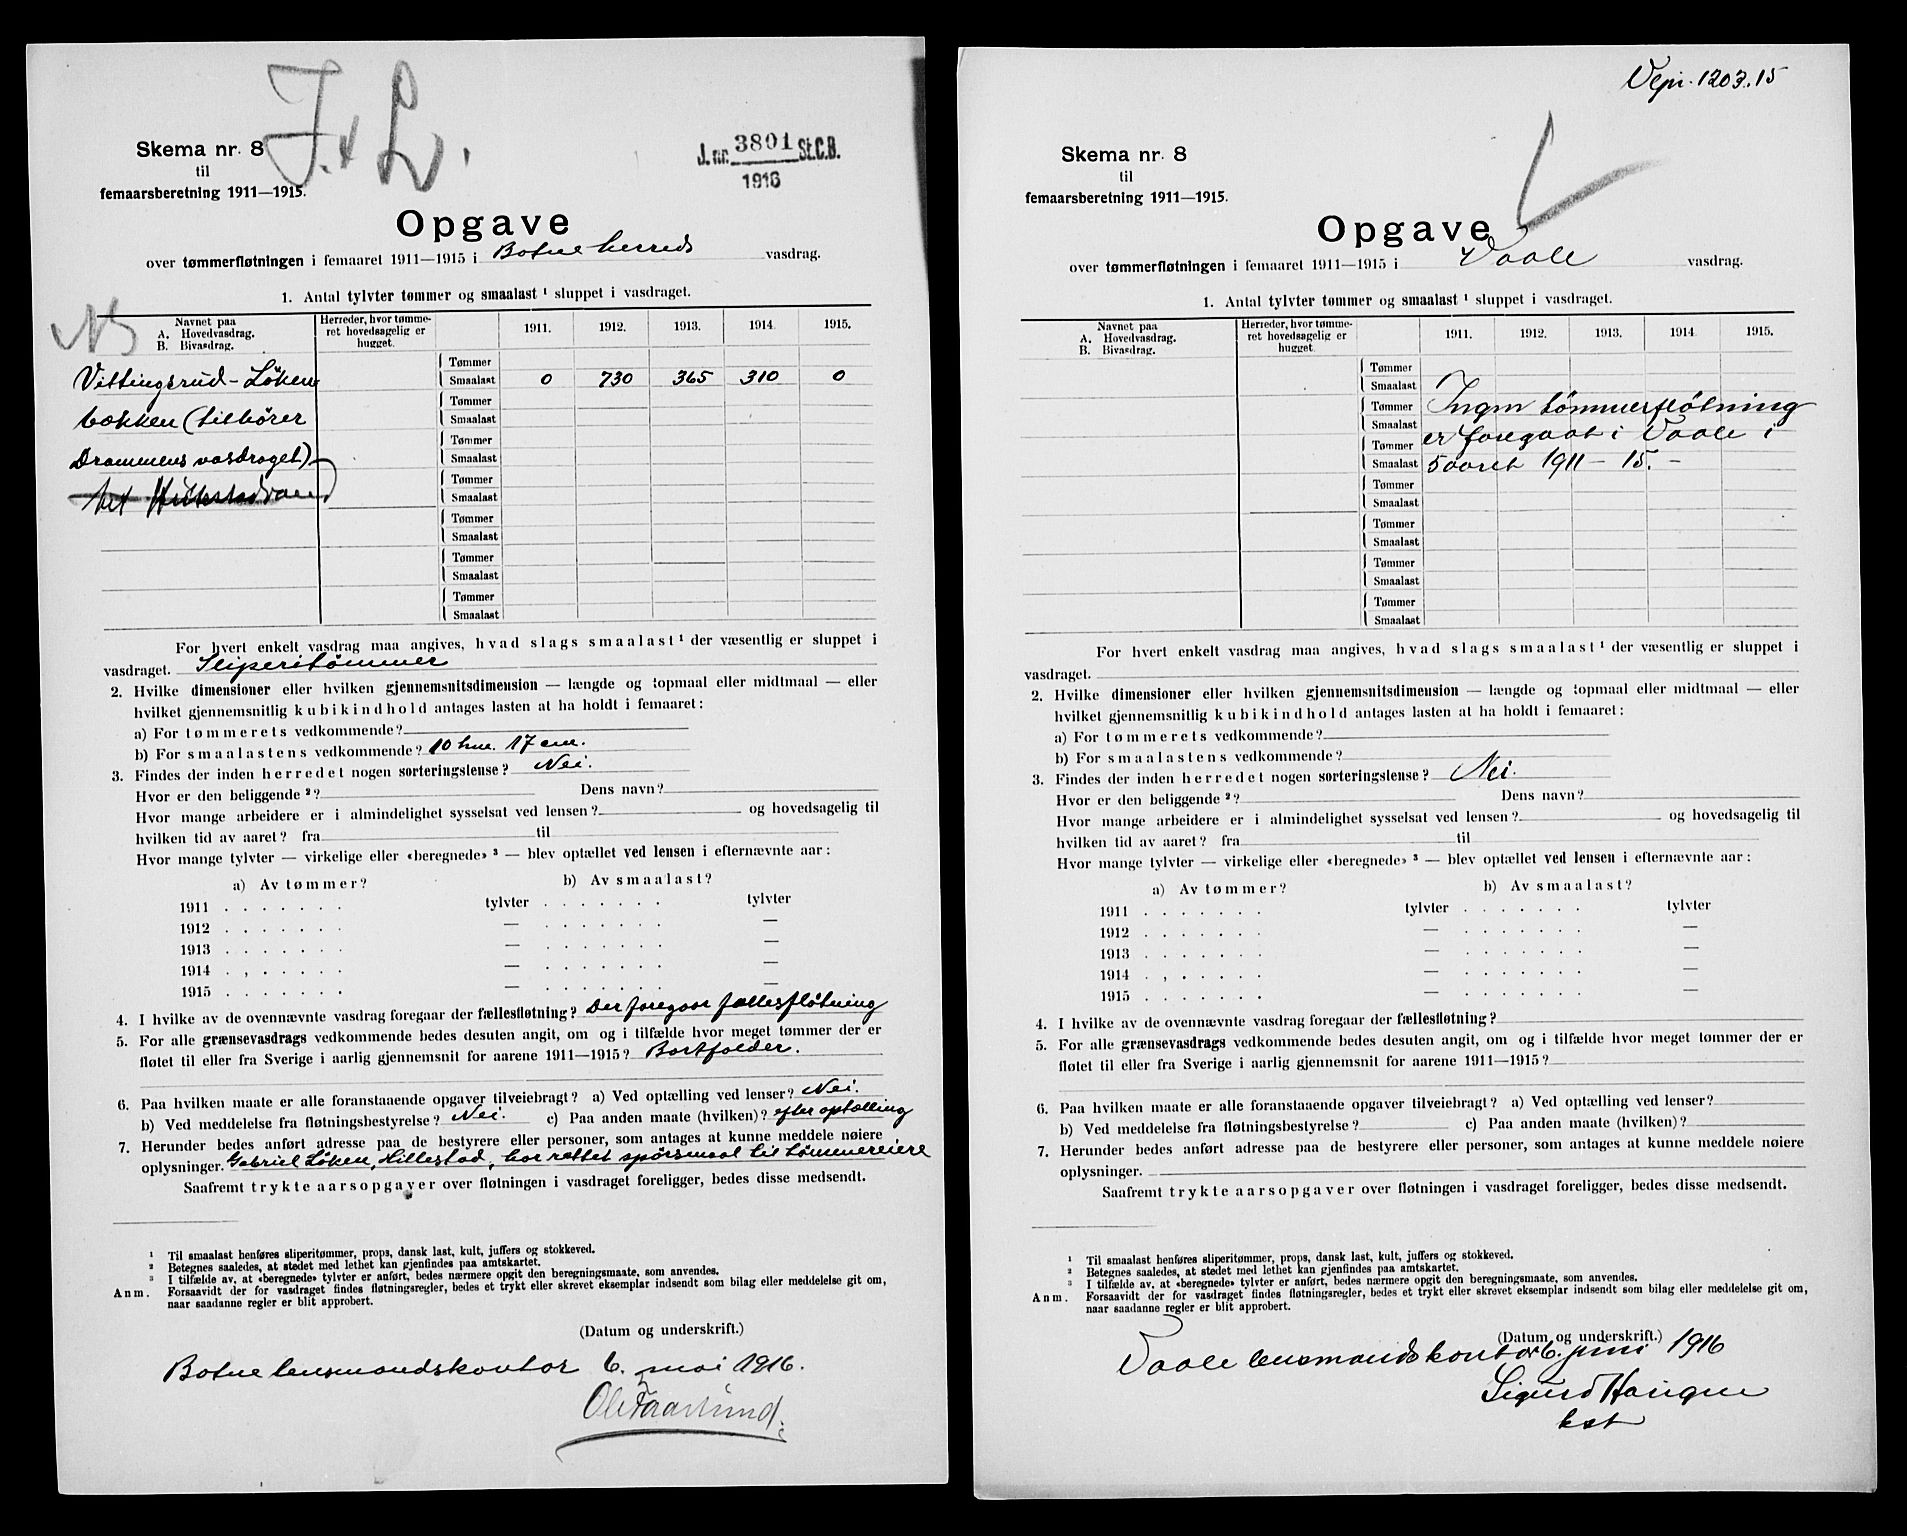 J. + L.
Skema nr. 8
til
femaarsberetning 1911—1915.
J. nr. 3801 St.C.B.
1916
Opgave
over tømmerfløtningen i femaaret 1911—1915 i Botne herreds vasdrag.
1. Antal tylvter tømmer og smaalast ¹ sluppet i vasdraget.
NB
Navnet paa
A. Hovedvasdrag.
B. Bivasdrag.
Herreder, hvor tømme-
ret hovedsagelig er
hugget.
1911. 1912. 1913. 1914. 1915.
Tømmer
Vittingsrud-Løken Smaalast 0 730 365 310 0
Tømmer
bækken (tilhører Smaalast
Tømmer
Drammens vasdraget) Smaalast
Tømmer
Smaalast
Tømmer
Smaalast
Tømmer
Smaalast
Tømmer
Smaalast
For hvert enkelt vasdrag maa angives, hvad slags smaalast ¹ der væsentlig er sluppet i
vasdraget. Sliperitømmer
2. Hvilke dimensioner eller hvilken gjennemsnitsdimension — længde og topmaal eller midtmaal — eller
hvilket gjennemsnitlig kubikindhold antages lasten at ha holdt i femaaret:
a) For tømmerets vedkommende?
b) For smaalastens vedkommende? 10 hm. 17 cm.
3. Findes der inden herredet nogen sorteringslense? Nei.
Hvor er den beliggende ²? Dens navn?
Hvor mange arbeidere er i almindelighet sysselsat ved lensen? og hovedsagelig til
hvilken tid av aaret? fra til
Hvor mange tylvter — virkelige eller «beregnede» ³ — blev optællet ved lensen i efternævnte aar:
a) Av tømmer? b) Av smaalast?
1911 . . . . . . . tylvter . . . . . . . tylvter
1912 . . . . . . . — . . . . . . . —
1913 . . . . . . . — . . . . . . . —
1914 . . . . . . . — . . . . . . . —
1915 . . . . . . . — . . . . . . . —
4. I hvilke av de ovennævnte vasdrag foregaar der fællesfløtning? Der foregaar fællesfløtning
5. For alle grænsevasdrags vedkommende bedes desuten angit, om og i tilfælde hvor meget tømmer der er
fløtet til eller fra Sverige i aarlig gjennemsnit for aarene 1911—1915? Bortfalder.
6. Paa hvilken maate er alle foranstaaende opgaver tilveiebragt? a) Ved optælling ved lenser? Nei.
b) Ved meddelelse fra fløtningsbestyrelse? Nei. c) Paa anden maate (hvilken)? efter optælling
7. Herunder bedes anført adresse paa de bestyrere eller personer, som antages at kunne meddele nøiere
oplysninger. Gabriel Løken, Hillestad, har rettet spørsmaal til tømmereiere
Saafremt trykte aarsopgaver over fløtningen i vasdraget foreligger, bedes disse medsendt.
¹ Til smaalast henføres sliperitømmer, props, dansk last, kult, juffers og stokkeved.
² Betegnes saaledes, at stedet med lethet kan gjenfindes paa amtskartet.
³ I tilfælde av, at «beregnede» tylvter er anført, bedes nærmere opgit den beregningsmaate, som anvendes.
Anm. Forsaavidt der for vasdraget findes fløtningsregler, bedes et trykt eller skrevet eksemplar indsendt som bilag eller meddelelse git om,
naar saadanne regler er blit approbert.
(Datum og underskrift.)
Botne lensmandskontor 6. mai 1916.
Ole Faarlund.

1203.15
Skema nr. 8
til
femaarsberetning 1911—1915.
Opgave
over tømmerfløtningen i femaaret 1911—1915 i Vaale vasdrag.
1. Antal tylvter tømmer og smaalast ¹ sluppet i vasdraget.
Navnet paa
A. Hovedvasdrag.
B. Bivasdrag.
Herreder, hvor tømme-
ret hovedsagelig er
hugget.
1911. 1912. 1913. 1914. 1915.
Tømmer
Smaalast
Tømmer Ingen tømmerfløtning
Smaalast
Tømmer er foregaat i Vaale i
Smaalast 5 aaret 1911 – 15. –
Tømmer
Smaalast
Tømmer
Smaalast
Tømmer
Smaalast
Tømmer
Smaalast
For hvert enkelt vasdrag maa angives, hvad slags smaalast ¹ der væsentlig er sluppet i
vasdraget.
2. Hvilke dimensioner eller hvilken gjennemsnitsdimension — længde og topmaal eller midtmaal — eller
hvilket gjennemsnitlig kubikindhold antages lasten at ha holdt i femaaret:
a) For tømmerets vedkommende?
b) For smaalastens vedkommende?
3. Findes der inden herredet nogen sorteringslense? Nei.
Hvor er den beliggende ²? Dens navn?
Hvor mange arbeidere er i almindelighet sysselsat ved lensen? og hovedsagelig til
hvilken tid av aaret? fra til
Hvor mange tylvter — virkelige eller «beregnede» ³ — blev optællet ved lensen i efternævnte aar:
a) Av tømmer? b) Av smaalast?
1911 . . . . . . . tylvter . . . . . . . tylvter
1912 . . . . . . . — . . . . . . . —
1913 . . . . . . . — . . . . . . . —
1914 . . . . . . . — . . . . . . . —
1915 . . . . . . . — . . . . . . . —
4. I hvilke av de ovennævnte vasdrag foregaar der fællesfløtning?
5. For alle grænsevasdrags vedkommende bedes desuten angit, om og i tilfælde hvor meget tømmer der er
fløtet til eller fra Sverige i aarlig gjennemsnit for aarene 1911—1915?
6. Paa hvilken maate er alle foranstaaende opgaver tilveiebragt? a) Ved optælling ved lenser?
b) Ved meddelelse fra fløtningsbestyrelse? c) Paa anden maate (hvilken)?
7. Herunder bedes anført adresse paa de bestyrere eller personer, som antages at kunne meddele nøiere
oplysninger.
Saafremt trykte aarsopgaver over fløtningen i vasdraget foreligger, bedes disse medsendt.
¹ Til smaalast henføres sliperitømmer, props, dansk last, kult, juffers og stokkeved.
² Betegnes saaledes, at stedet med lethet kan gjenfindes paa amtskartet.
³ I tilfælde av, at «beregnede» tylvter er anført, bedes nærmere opgit den beregningsmaate, som anvendes.
Anm. Forsaavidt der for vasdraget findes fløtningsregler, bedes et trykt eller skrevet eksemplar indsendt som bilag eller meddelelse git om,
naar saadanne regler er blit approbert.
(Datum og underskrift.)
Vaale lensmandskontor 6. juni 1916
Sigurd Haugen
kst